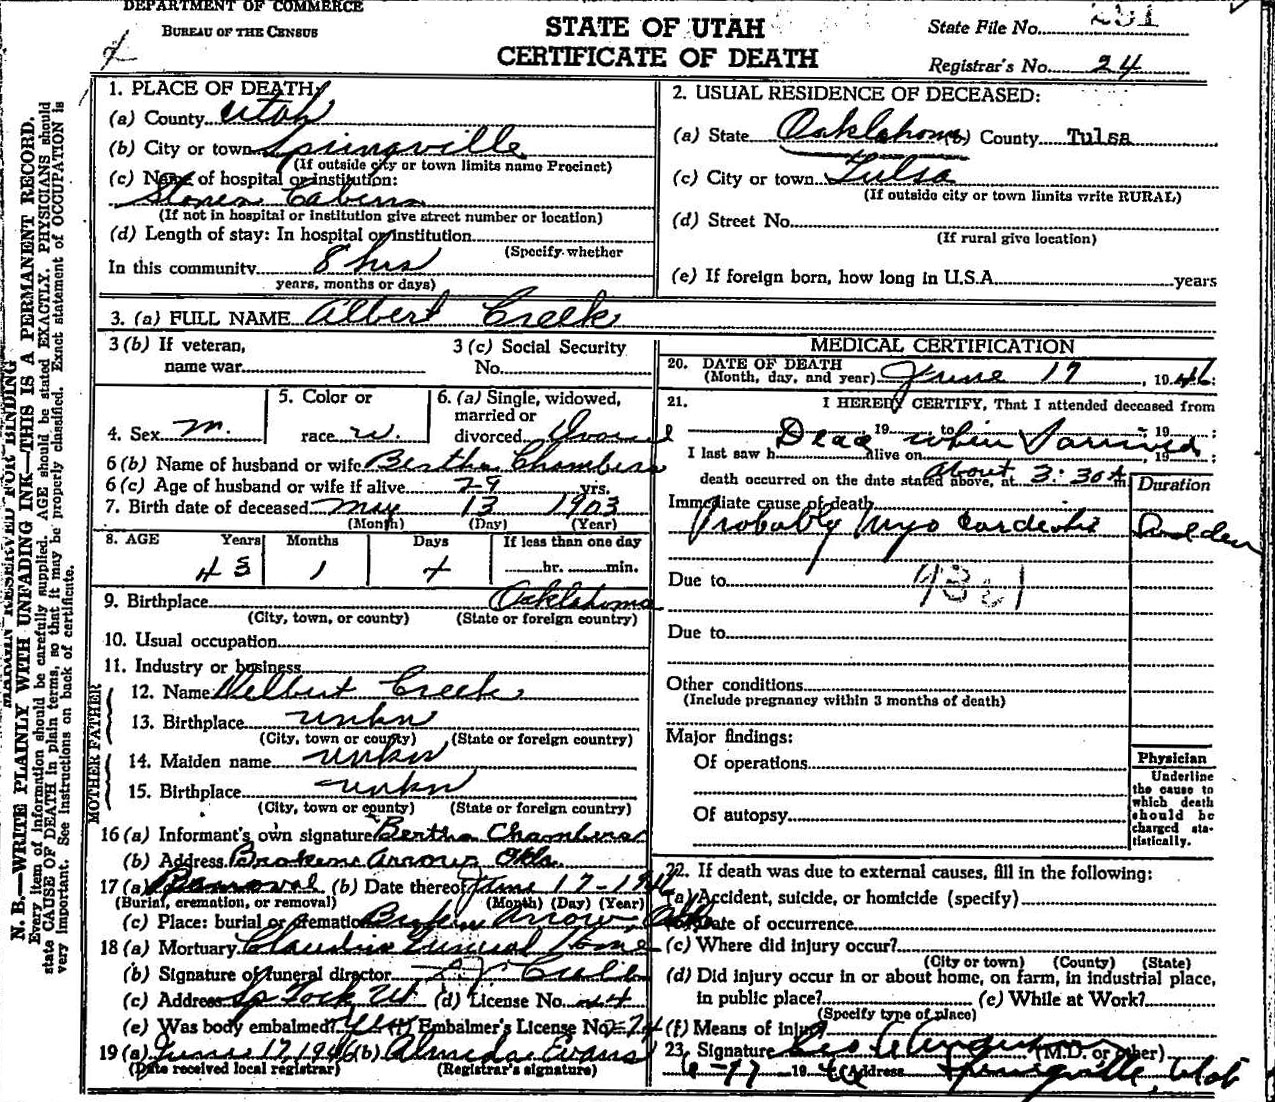 DEPARTMENT OF COMMERCE
BUREAU OF THE CENSUS
STATE OF UTAH
CERTIFICATE OF DEATH
State File No.
Registrar's No. 24
N. B.—WRITE PLAINLY WITH UNFADING INK—THIS IS A PERMANENT RECORD.
Every item of information should be carefully supplied. AGE should be stated EXACTLY. PHYSICIANS should
state CAUSE OF DEATH in plain terms, so that it may be properly classified. Exact statement of OCCUPATION is
very important. See instructions on back of certificate.
1. PLACE OF DEATH:
(a) County Utah
(b) City or town Springville
(If outside city or town limits name Precinct)
(c) Name of hospital or institution:
Cabins
(If not in hospital or institution give street number or location)
(d) Length of stay: In hospital or institution
(Specify whether
In this community 8 hrs
years, months or days)
2. USUAL RESIDENCE OF DECEASED:
(a) State Oaklahoma (b) County Tulsa
(c) City or town Tulsa
(If outside city or town limits write RURAL)
(d) Street No.
(If rural give location)
(e) If foreign born, how long in U.S.A. years
3. (a) FULL NAME Albert Creek
3 (b) If veteran,
name war
3 (c) Social Security
No.
4. Sex M.
5. Color or
race W.
6. (a) Single, widowed,
married or
divorced Divorced
6 (b) Name of husband or wife Bertha Chambers
6 (c) Age of husband or wife if alive 29 yrs.
7. Birth date of deceased May 13 1903
(Month) (Day) (Year)
8. AGE Years Months Days If less than one day
43 1 4 hr. min.
9. Birthplace Oaklahoma
(City, town, or county) (State or foreign country)
10. Usual occupation
11. Industry or business
FATHER
12. Name Delbert Creek
13. Birthplace unkn
(City, town or county) (State or foreign country)
MOTHER
14. Maiden name unkn
15. Birthplace unkn
(City, town or county) (State or foreign country)
16 (a) Informant's own signature Bertha Chambers
(b) Address Broken Arrow Okla
17 (a) Removal (b) Date thereof June 17-1946
(Burial, cremation, or removal) (Month) (Day) (Year)
(c) Place: burial or cremation Broken Arrow Okla
18 (a) Mortuary Claudin Funeral Home
(b) Signature of funeral director
(c) Address (d) License No.
(e) Was body embalmed? Yes (f) Embalmer's License No.
19 (a) June 17, 1946 (b) Almeda Evans
(Date received local registrar) (Registrar's signature)
MEDICAL CERTIFICATION
20. DATE OF DEATH
(Month, day, and year) June 17, 1946:
21. I HEREBY CERTIFY, That I attended deceased from
19 to 19 ;
I last saw h alive on 19 ;
Dead when I arrived
death occurred on the date stated above, at About 3:30 A m
Duration
Immediate cause of death
Probably Myocarditis Sudden
Due to
Due to
Other conditions
(Include pregnancy within 3 months of death)
Major findings:
Of operations
Of autopsy
Physician
Underline
the cause to
which death
should be
charged sta-
tistically.
22. If death was due to external causes, fill in the following:
(a) Accident, suicide, or homicide (specify)
(b) Date of occurrence
(c) Where did injury occur?
(City or town) (County) (State)
(d) Did injury occur in or about home, on farm, in industrial place,
in public place? (e) While at Work?
(Specify type of place)
(f) Means of injury
23. Signature (M.D. or other)
6-17 1946 (Address Springville, Utah